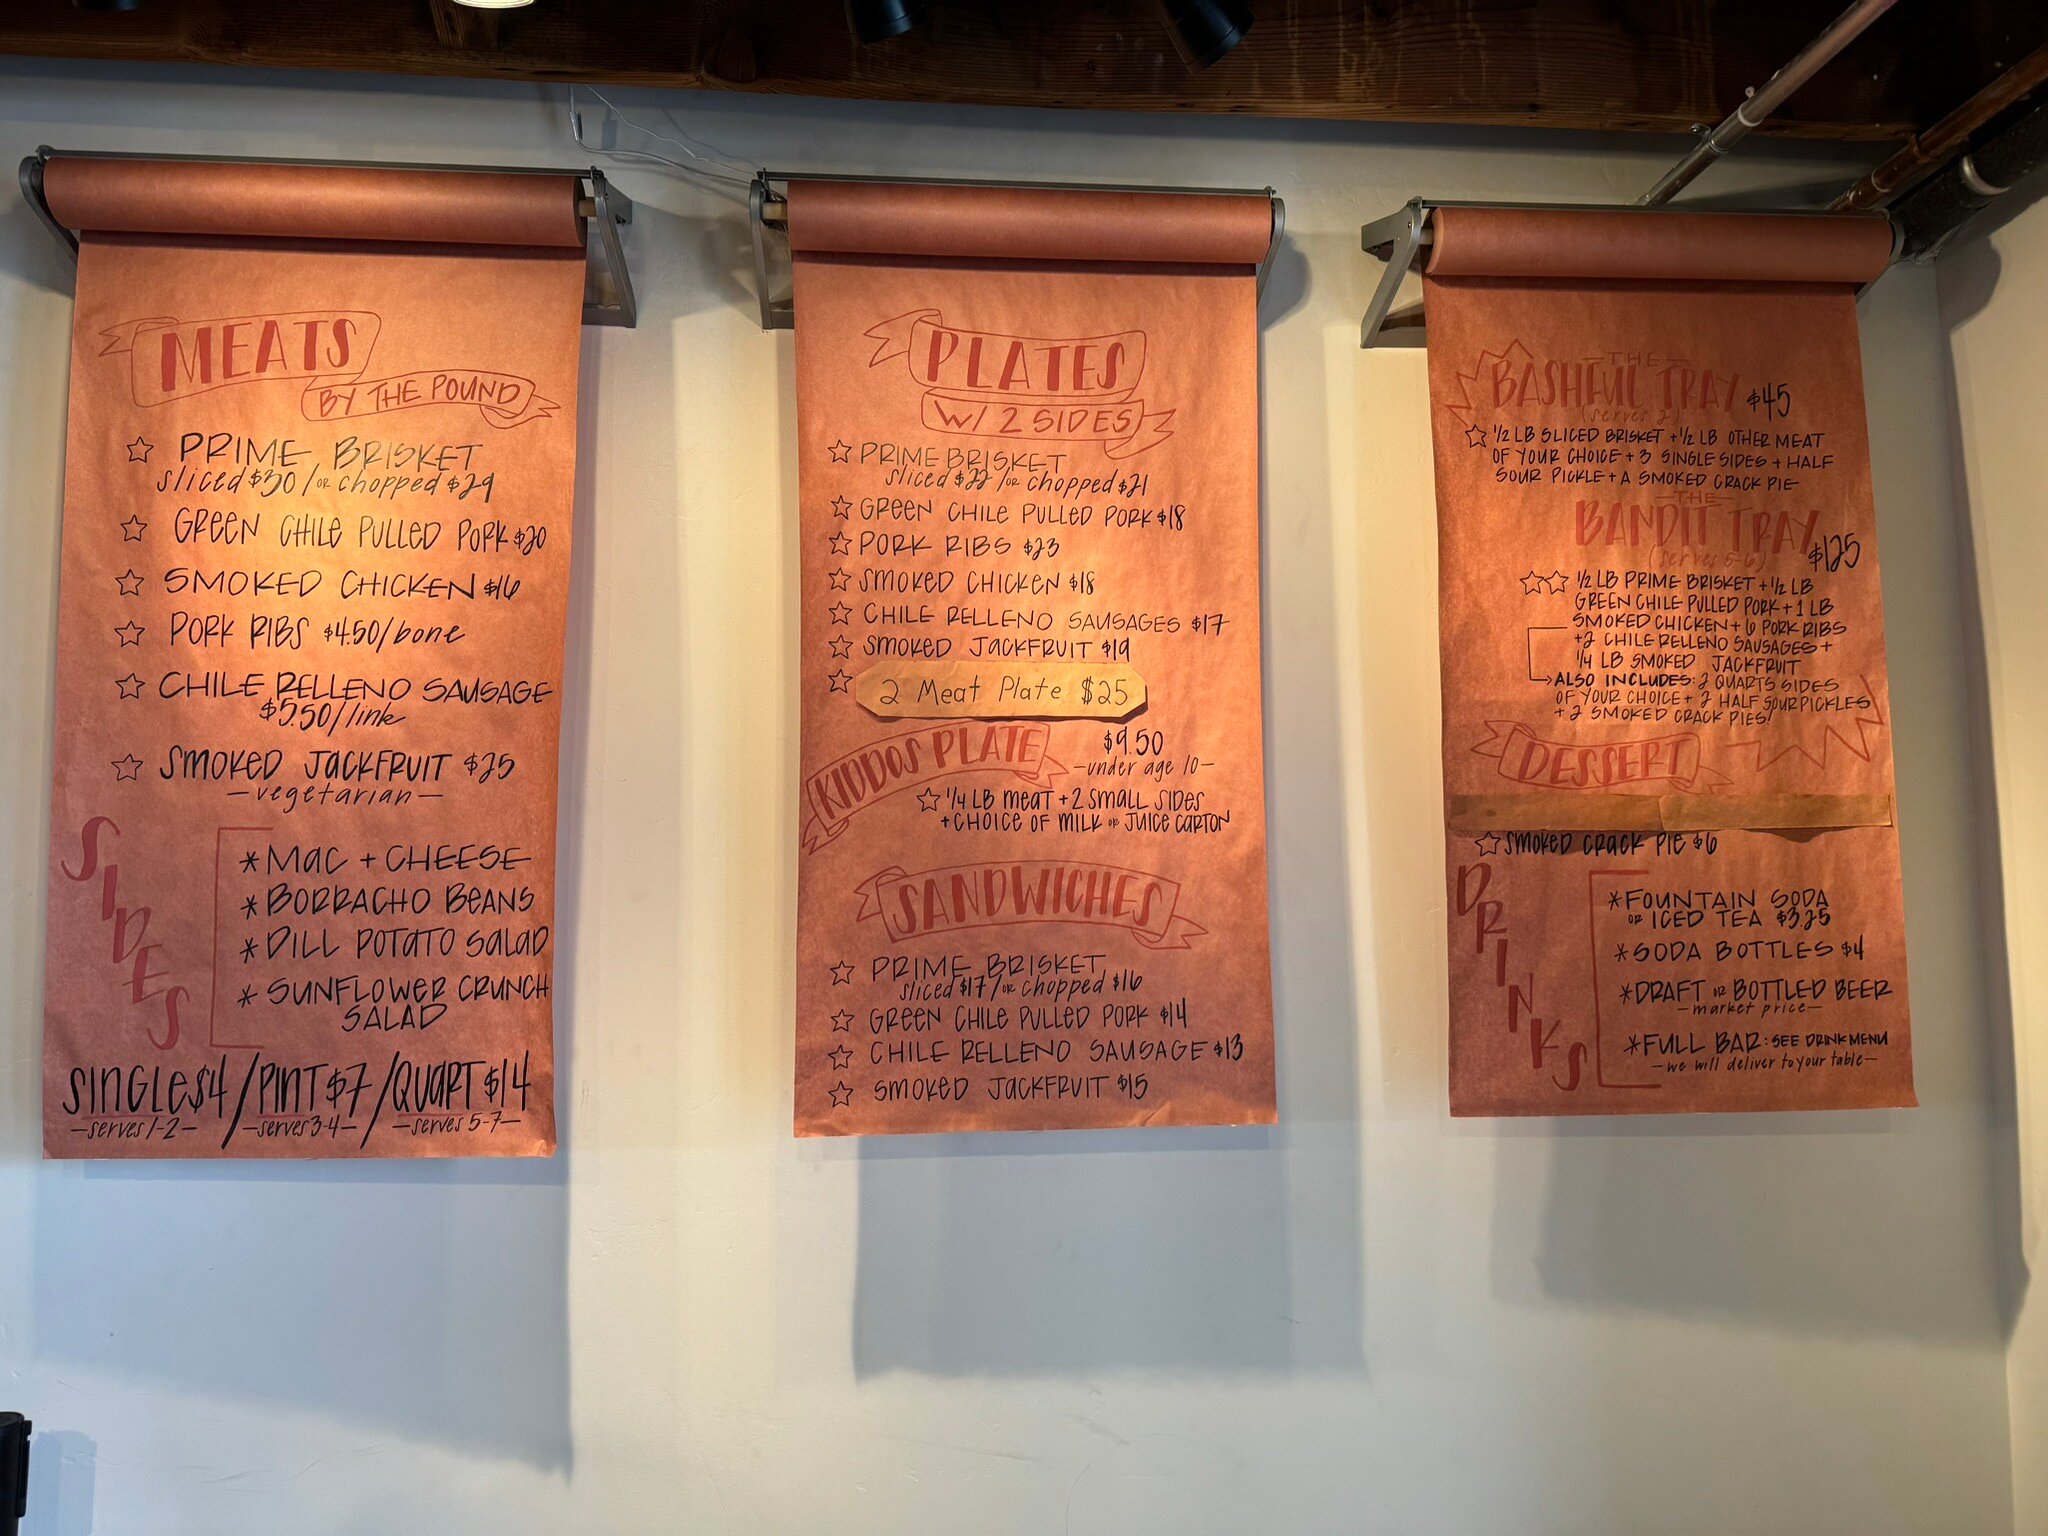 MEATS
BY THE POUND
☆ PRIME BRISKET
sliced $30 / or chopped $29
☆ GREEN CHILE PULLED PORK $20
☆ SMOKED CHICKEN $16
☆ PORK RIBS $4.50/bone
☆ CHILE RELLENO SAUSAGE
$5.50/link
☆ SMOKED JACKFRUIT $25
—vegetarian—
SIDES
* MAC + CHEESE
* BORRACHO BEANS
* DILL POTATO SALAD
* SUNFLOWER CRUNCH
SALAD
SINGLE $4 / PINT $7 / QUART $14
—serves 1-2— —serves 3-4— —serves 5-7—
PLATES
W/ 2 SIDES
☆ PRIME BRISKET
sliced $22 / or chopped $21
☆ GREEN CHILE PULLED PORK $18
☆ PORK RIBS $23
☆ SMOKED CHICKEN $18
☆ CHILE RELLENO SAUSAGES $17
☆ SMOKED JACKFRUIT $19
☆ 2 Meat Plate $25
KIDDOS PLATE $9.50
—under age 10—
☆ 1/4 LB MEAT + 2 SMALL SIDES
+ CHOICE OF MILK or JUICE CARTON
SANDWICHES
☆ PRIME BRISKET
sliced $17 / or chopped $16
☆ GREEN CHILE PULLED PORK $14
☆ CHILE RELLENO SAUSAGE $13
☆ SMOKED JACKFRUIT $15
—THE—
BASHFUL TRAY $45
(serves 2)
☆ 1/2 LB SLICED BRISKET + 1/2 LB OTHER MEAT
OF YOUR CHOICE + 3 SINGLE SIDES + HALF
SOUR PICKLE + A SMOKED CRACK PIE
—THE—
BANDIT TRAY $125
(serves 5-6)
☆☆ 1/2 LB PRIME BRISKET + 1/2 LB
GREEN CHILE PULLED PORK + 1 LB
SMOKED CHICKEN + 6 PORK RIBS
+ 2 CHILE RELLENO SAUSAGES +
1/4 LB SMOKED JACKFRUIT
→ ALSO INCLUDES: 2 QUARTS SIDES
OF YOUR CHOICE + 2 HALF SOUR PICKLES
+ 2 SMOKED CRACK PIES!
DESSERT
☆ SMOKED CRACK PIE $6
DRINKS
* FOUNTAIN SODA
or ICED TEA $3.25
* SODA BOTTLES $4
* DRAFT or BOTTLED BEER
—market price—
* FULL BAR: SEE DRINK MENU
—we will deliver to your table—